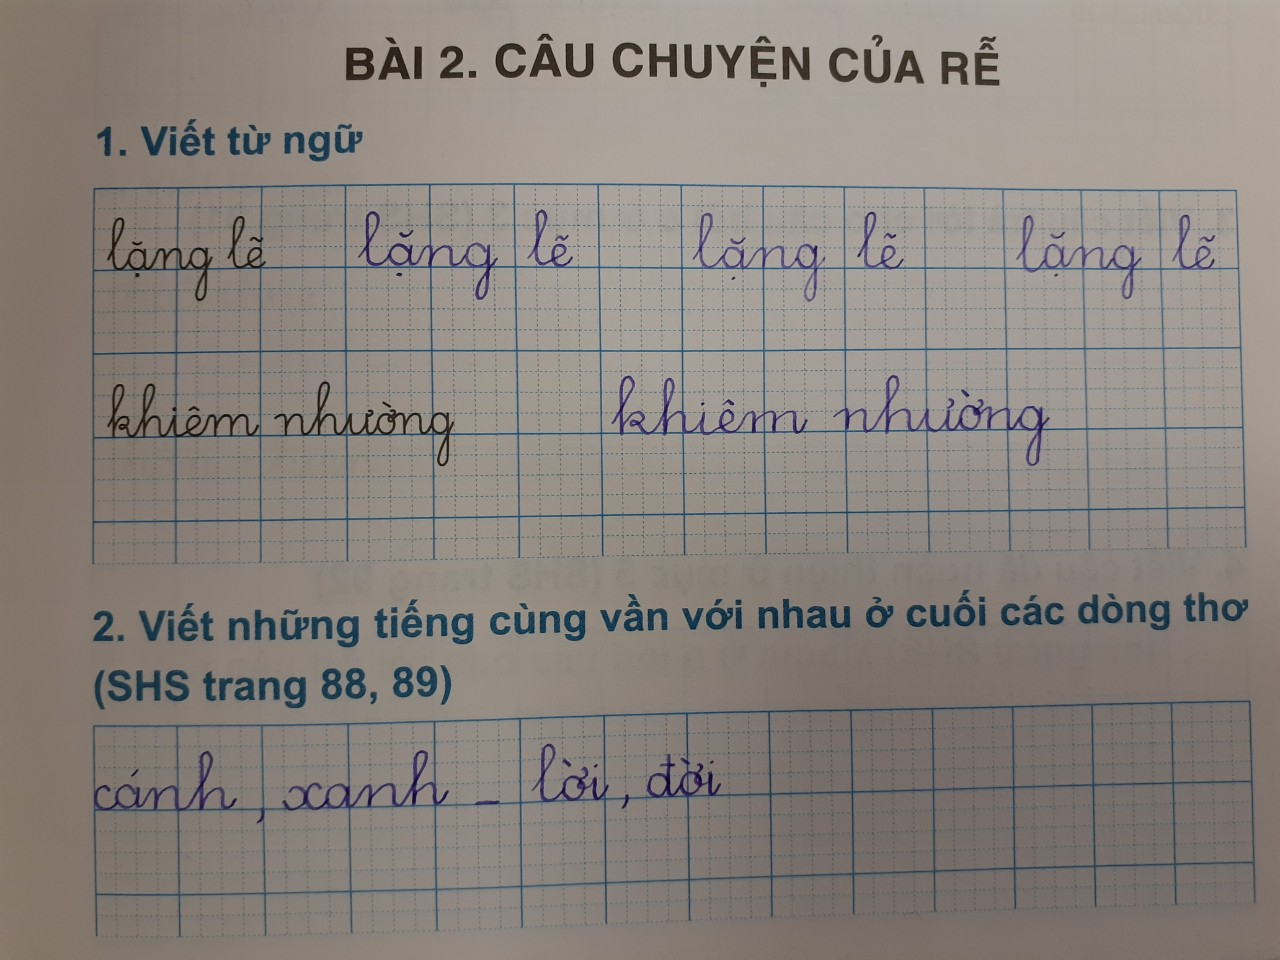 BÀI 2. CÂU CHUYỆN CỦA RỄ
1. Viết từ ngữ
lặng lẽ lặng lẽ lặng lẽ lặng lẽ
khiêm nhường khiêm nhường
2. Viết những tiếng cùng vần với nhau ở cuối các dòng thơ
(SHS trang 88, 89)
cánh, xanh - lời, đời